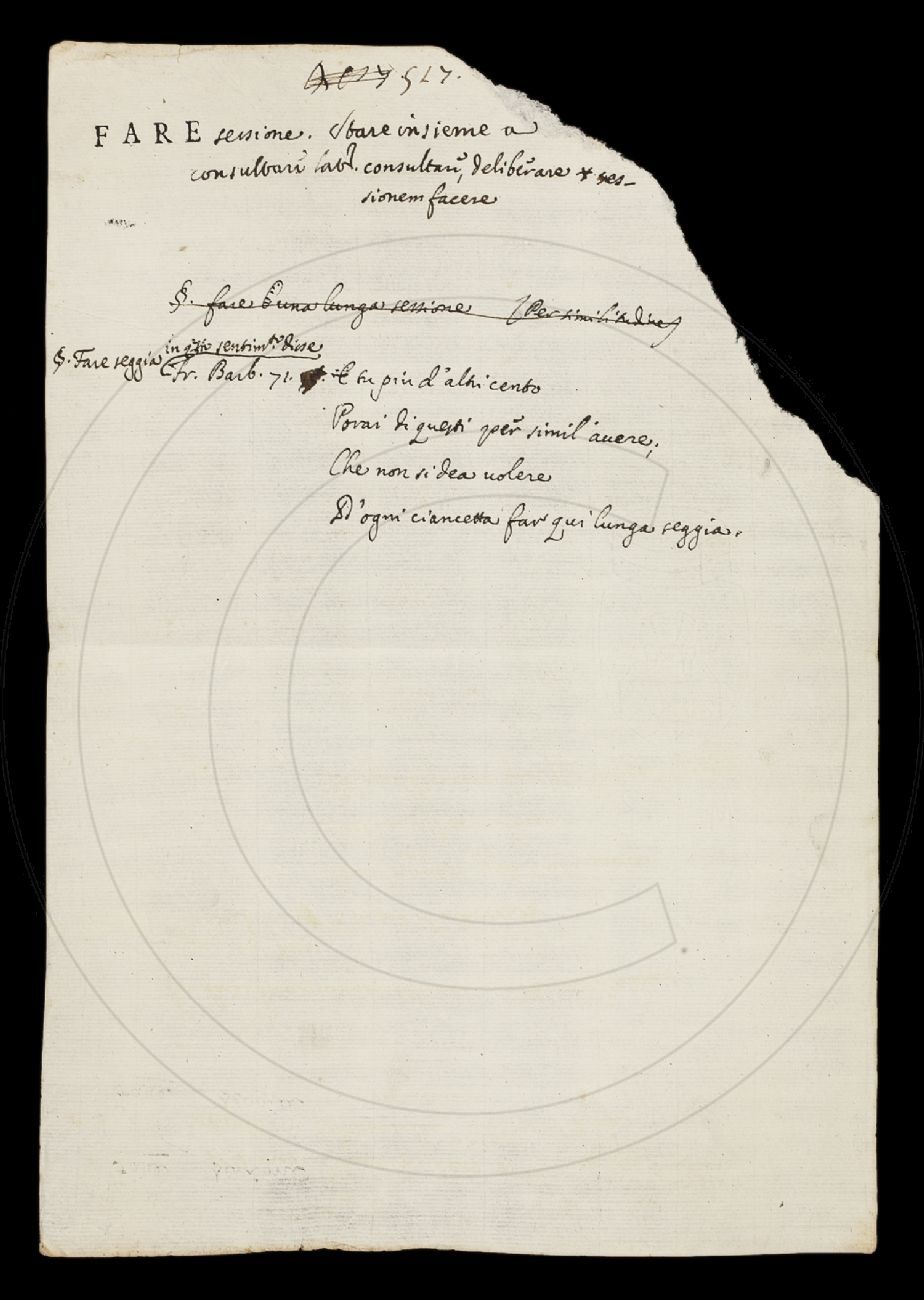 517.
FARE sessione. Stare insieme a
consultare lat. consultare, deliberare + ses-
sionem facere
§. fare una lunga sessione (Per similitudine)
in qsto sentimto disse
§. Fare seggia Fr. Barb. 71. E tu piu d'altri cento
Porai di questi per simil avere;
Che non si dea volere
D'ogni ciancetta far qui lunga seggia.